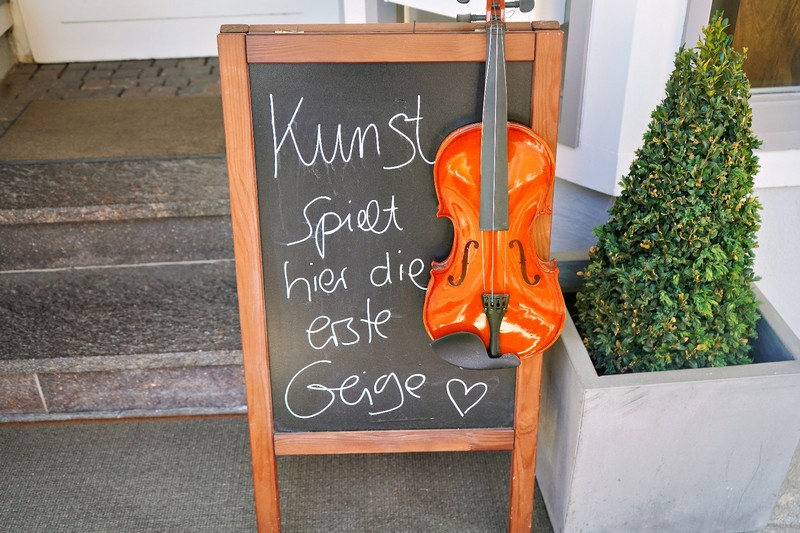 Kunst
Spielt
hier die
erste
Geige ♡